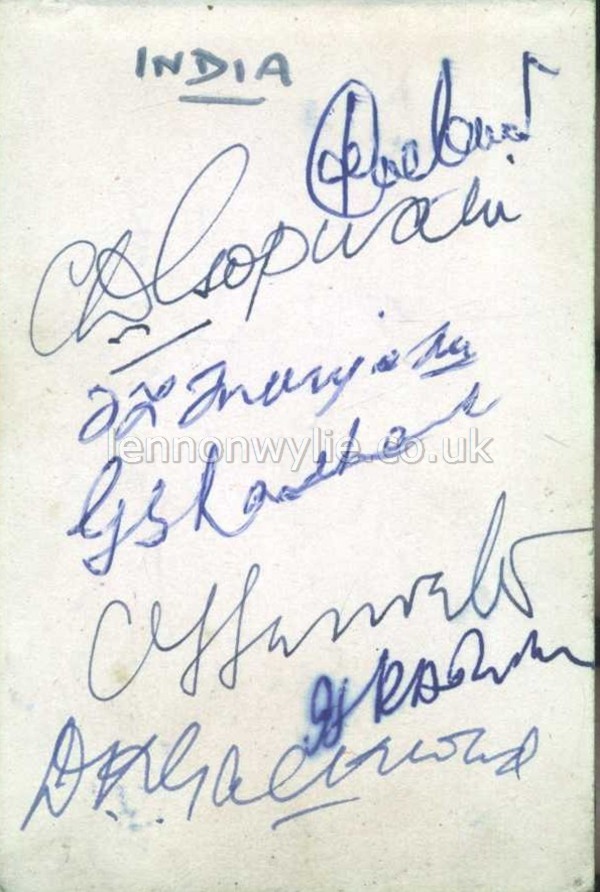 INDIA
C D Gopinath
V L Manjrekar
G S Ramchand
C T Sarwate
H R Adhikari
D K Gaekwad
lennonwylie.co.uk